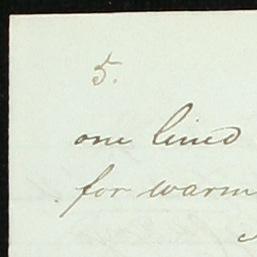 5.
one lined
for warm